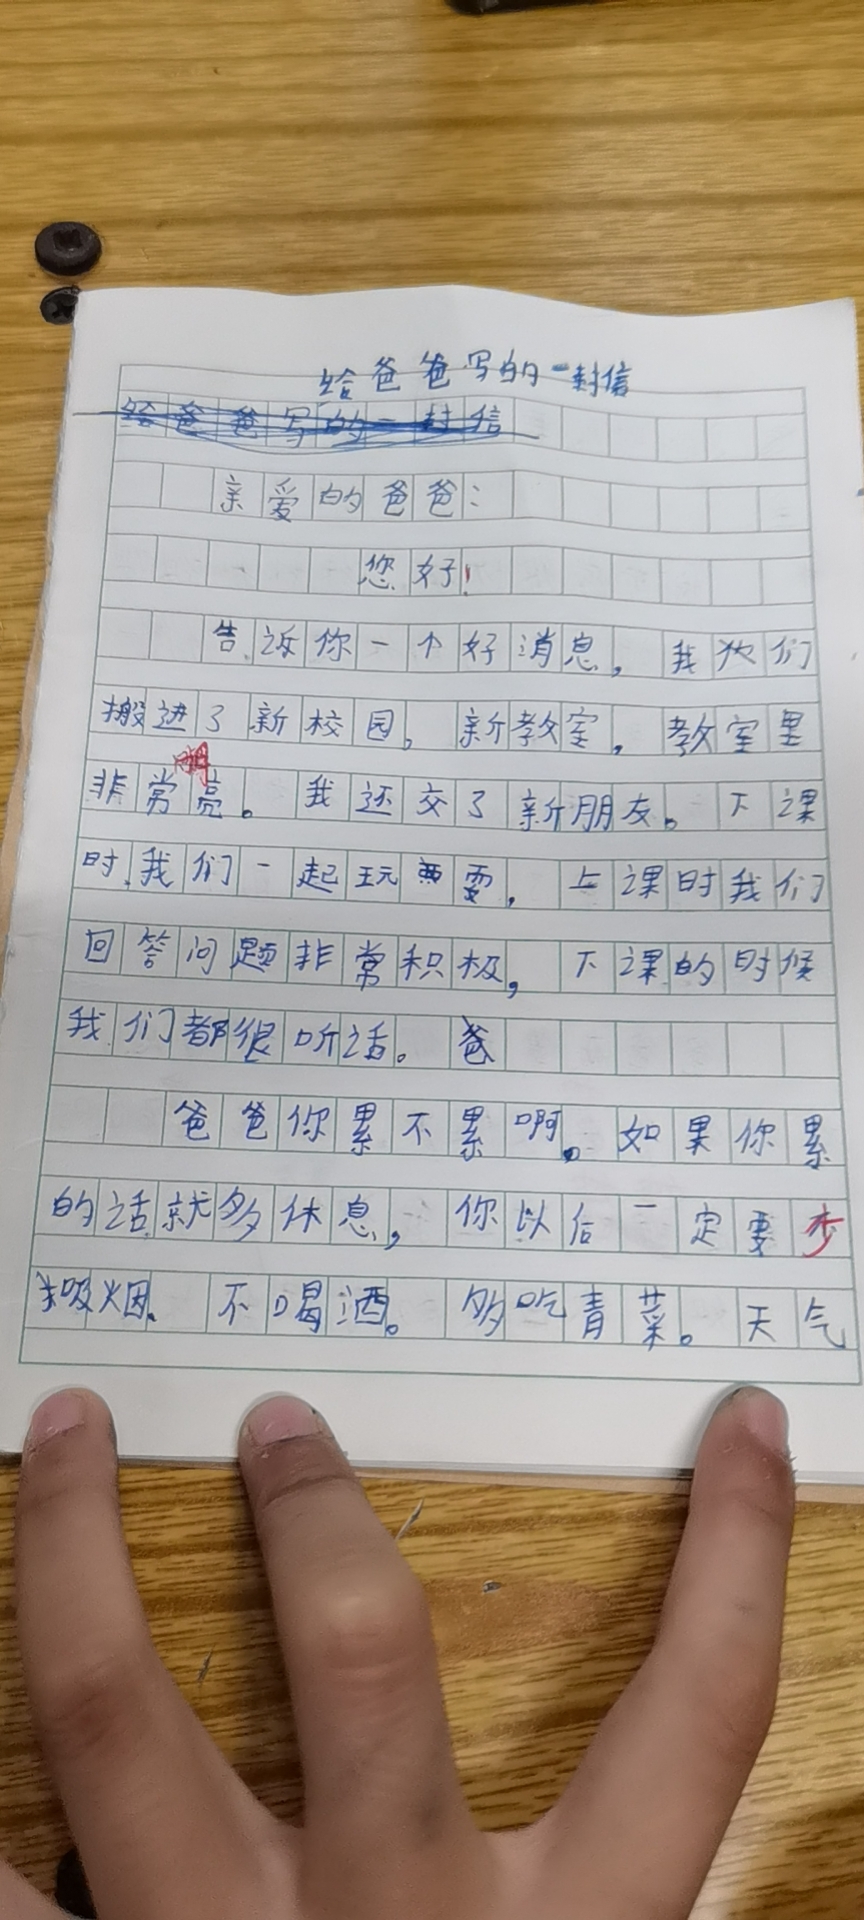 给爸爸写的一封信
给爸爸写的一封信
亲爱的爸爸：
您好！
告诉你一个好消息，我们
搬进了新校园。新教室，教室里
非常亮。我还交了新朋友。下课
时，我们一起玩耍，上课时我们
回答问题非常积极，下课的时候
我们都很听话。爸
爸爸你累不累啊。如果你累
的话就多休息，你以后一定要少
吸烟、不喝酒。多吃青菜。天气